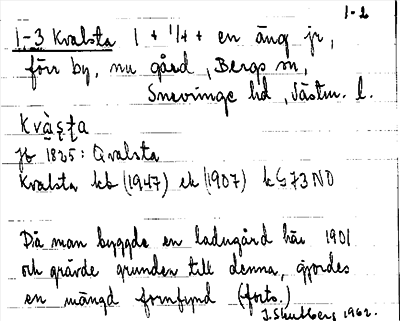 1-2
1-3 Kvalsta 1 + 1/4 + en äng jr,
förr by, nu gård, Bergs sn,
Snevringe hd, Västm. l.
Kvàs̩ta
jb 1825: Qvalsta
Kvalsta kb (1947) ek (1907) k G73 NO
Då man byggde en ladugård här 1901
och grävde grunden till denna, gjordes
en mängd fornfynd (forts.)
J. Stahlberg 1962.